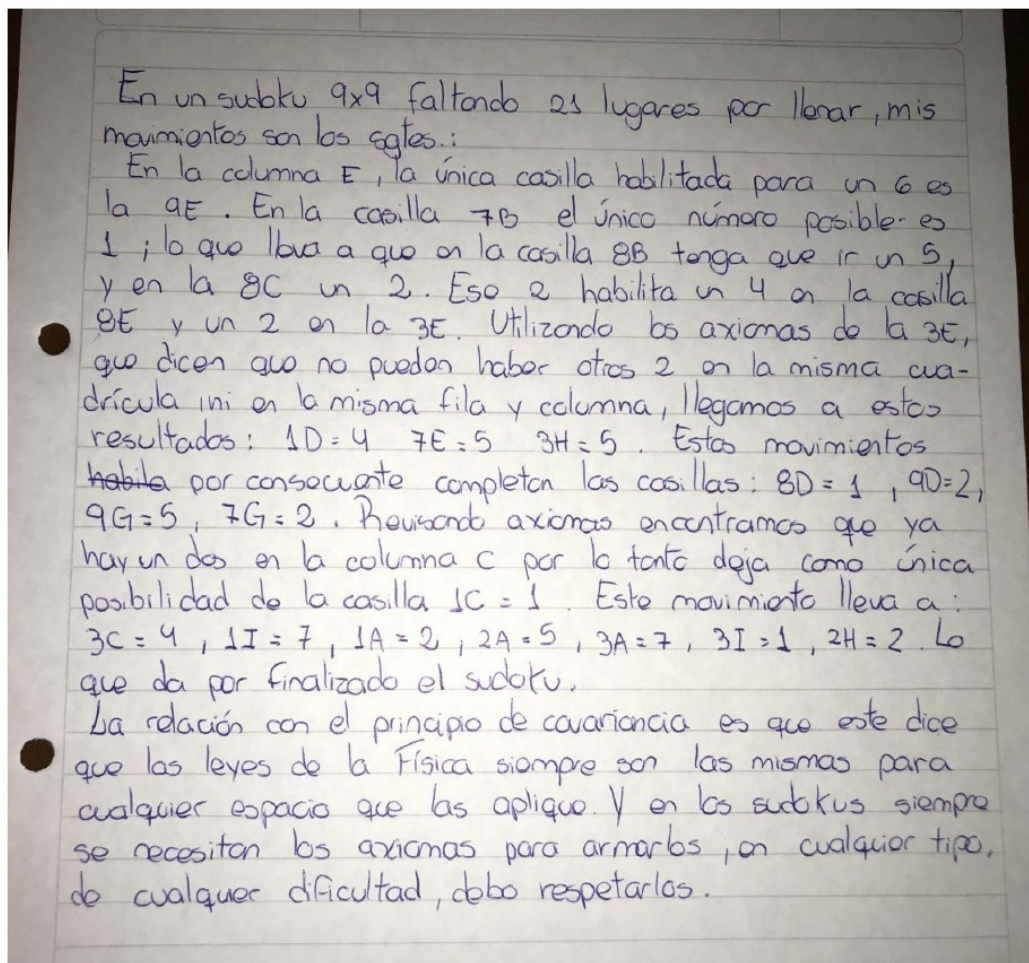 En un sudoku 9x9 faltando 21 lugares por llenar, mis
movimientos son los sgtes.:
En la columna E, la única casilla habilitada para un 6 es
la 9E. En la casilla 7B el único número posible es
1; lo que lleva a que en la casilla 8B tenga que ir un 5,
y en la 8C un 2. Ese 2 habilita un 4 en la casilla
8E y un 2 en la 3E. Utilizando los axiomas de la 3E,
que dicen que no pueden haber otros 2 en la misma cua-
drícula, ni en la misma fila y columna, llegamos a estos
resultados: 1D=4 7E=5 3H=5. Estos movimientos
habila por consecuente completan las casillas: 8D=1, 9D=2,
9G=5, 7G=2. Revisando axiomas encontramos que ya
hay un dos en la columna C por lo tanto deja como única
posibilidad de la casilla 1C=1. Este movimiento lleva a:
3C=4, 1I=7, 1A=2, 2A=5, 3A=7, 3I=1, 2H=2. Lo
que da por finalizado el sudoku.
La relación con el principio de covariancia es que este dice
que las leyes de la Física siempre son las mismas para
cualquier espacio que las aplique. Y en los sudokus siempre
se necesitan los axiomas para armarlos, en cualquier tipo,
de cualquer dificultad, debo respetarlos.